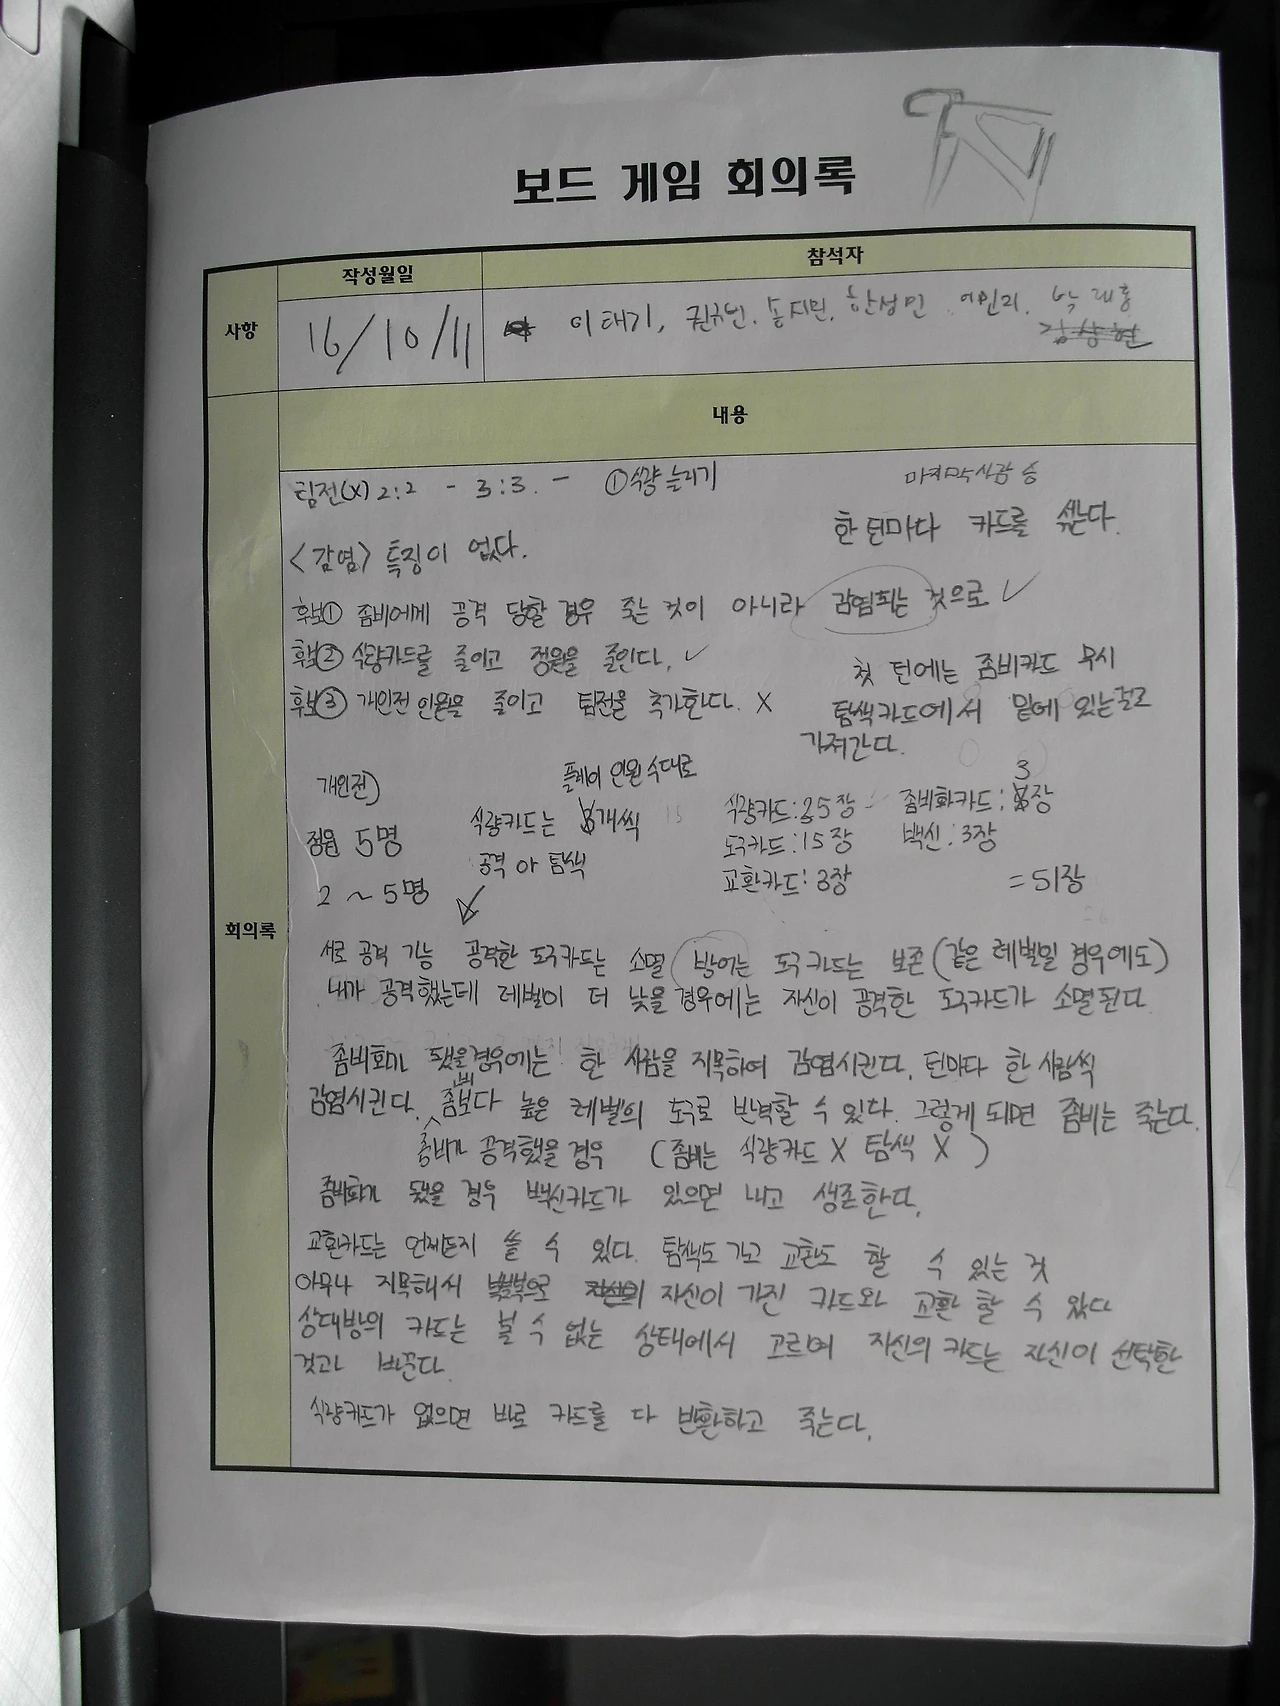 보드 게임 회의록
사항
작성월일
참석자
16/10/11
이태기, 권규빈, 송지민, 한성민, 이민지, 박재홍
내용
회의록
팀전(X) 2:2 - 3:3. - ①식량 늘리기
마지막사람 승
한 턴마다 카드를 섞는다.
<감염> 특징이 없다.
후보① 좀비에게 공격 당할 경우 죽는 것이 아니라 감염되는 것으로 ✓
후보② 식량카드를 줄이고 정원을 줄인다. ✓
후보③ 개인전 인원을 줄이고 팀전을 추가한다. X
첫 턴에는 좀비카드 무시
탐색카드에서 밑에 있는걸로
가져간다.
개인전)
정원 5명
2 ~ 5명
플레이 인원 수대로
식량카드는 개씩
공격 or 탐색
식량카드: 25장
도구카드: 15장
교환카드: 3장
좀비화카드: 3장
백신: 3장
= 51장
서로 공격 가능 공격한 도구카드는 소멸 방어는 도구카드는 보존 (같은 레벨일 경우에도)
내가 공격했는데 레벨이 더 낮을 경우에는 자신이 공격한 도구카드가 소멸된다
좀비화가 됐을경우에는 한 사람을 지목하여 감염시킨다. 턴마다 한 사람씩
감염시킨다. 좀비보다 높은 레벨의 도구로 반격할 수 있다. 그렇게 되면 좀비는 죽는다.
좀비가 공격했을 경우 (좀비는 식량카드 X 탐색 X )
좀비화가 됐을 경우 백신카드가 있으면 내고 생존한다.
교환카드는 언제든지 쓸 수 있다. 탐색도 가고 교환도 할 수 있는 것
아무나 지목해서 자신이 가진 카드와 교환 할 수 있다
상대방의 카드는 볼 수 없는 상태에서 고르며 자신의 카드는 자신이 선택한
것과 바꾼다.
식량카드가 없으면 바로 카드를 다 반환하고 죽는다.